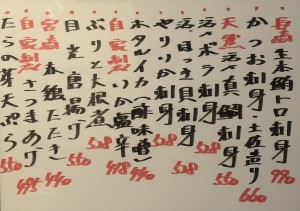 長島 生本鮪トロ刺身 990
かつお刺身・土佐造り 660
天然 活〆真鯛刺身
活〆ボラ刺身 528
活ほっき貝刺身 528
やりいか刺身 528
ホタルイカ(酢味噌) 440
自家製 いか塩辛 418
ぶりと大根煮 528
目光唐揚げ 550
宮崎 赤鶏たたき 440
自家製 さつまあげ 495
たらの芽天ぷら 550